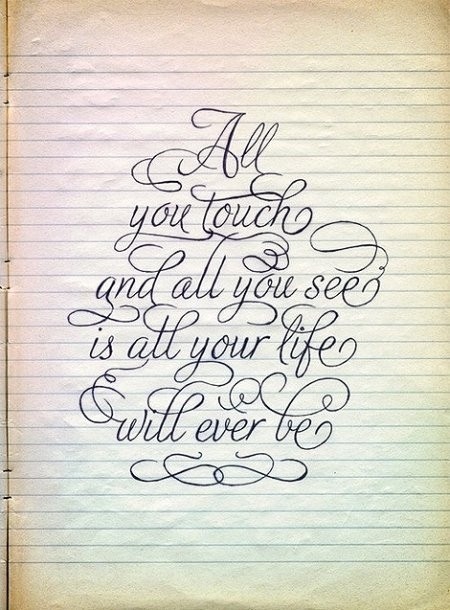 All
you touch
and all you see
is all your life
will ever be